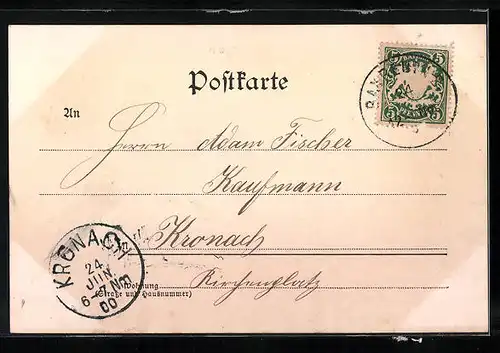 Postkarte
An
Herrn Adam Fischer
Kaufmann
Kronach
Kirchenplatz
Wohnung
(Straße und Hausnummer)
KRONACH
24
JUN
6-7 NM
00
5 5